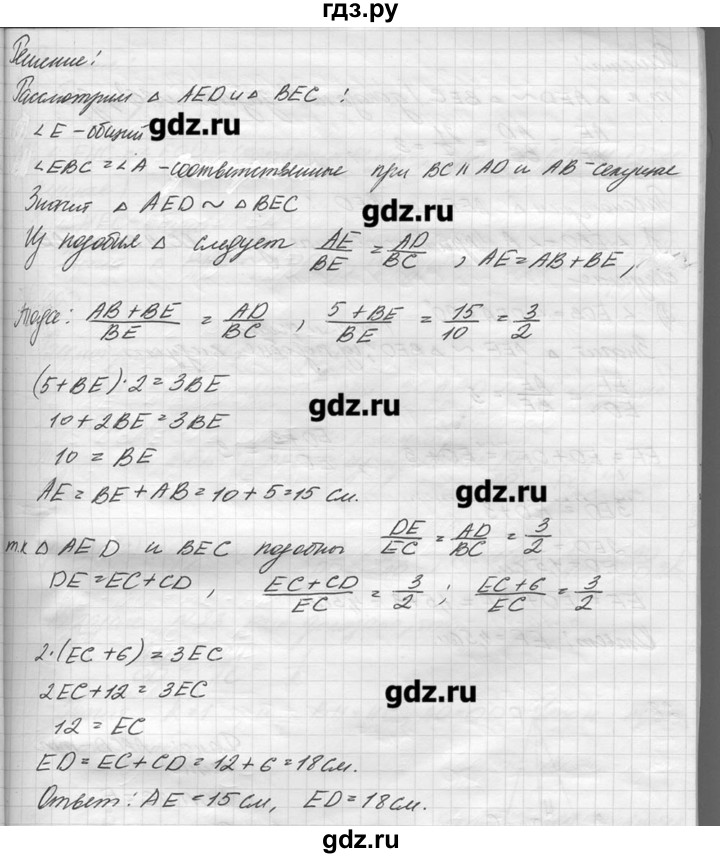 гдз.ру
Решение:
Рассмотрим △ AED и △ BEC :
∠E - общий
gdz.ru
∠EBC = ∠A - соответственные при BC ∥ AD и AB - секущие
Значит △ AED ~ △ BEC
gdz.ru
Из подобия △ следует AE/BE = AD/BC , AE = AB + BE ,
тогда: (AB + BE)/BE = AD/BC , (5 + BE)/BE = 15/10 = 3/2
(5 + BE) · 2 = 3BE
gdz.ru
10 + 2BE = 3BE
10 = BE
AE = BE + AB = 10 + 5 = 15 см.
gdz.ru
т.к △ AED и BEC подобны DE/EC = AD/BC = 3/2
DE = EC + CD , (EC + CD)/EC = 3/2 ; (EC + 6)/EC = 3/2
2 · (EC + 6) = 3EC
2EC + 12 = 3EC
gdz.ru
12 = EC
ED = EC + CD = 12 + 6 = 18 см.
Ответ: AE = 15 см, ED = 18 см.
gdz.ru